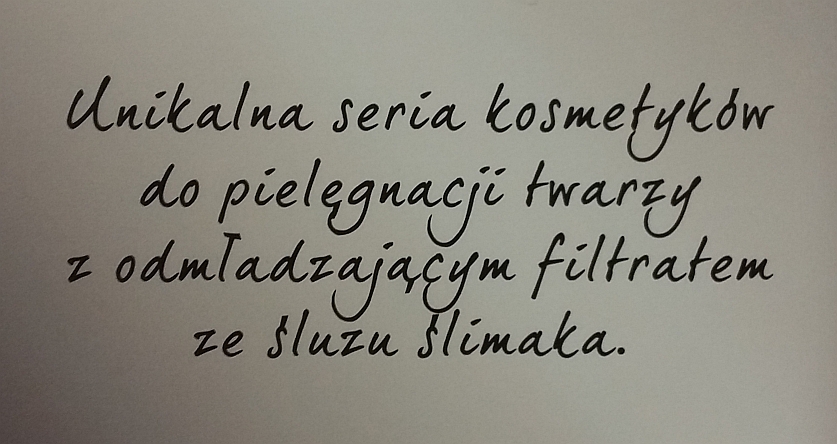 Unikalna seria kosmetyków
do pielęgnacji twarzy
z odmładzającym filtratem
ze śluzu ślimaka.